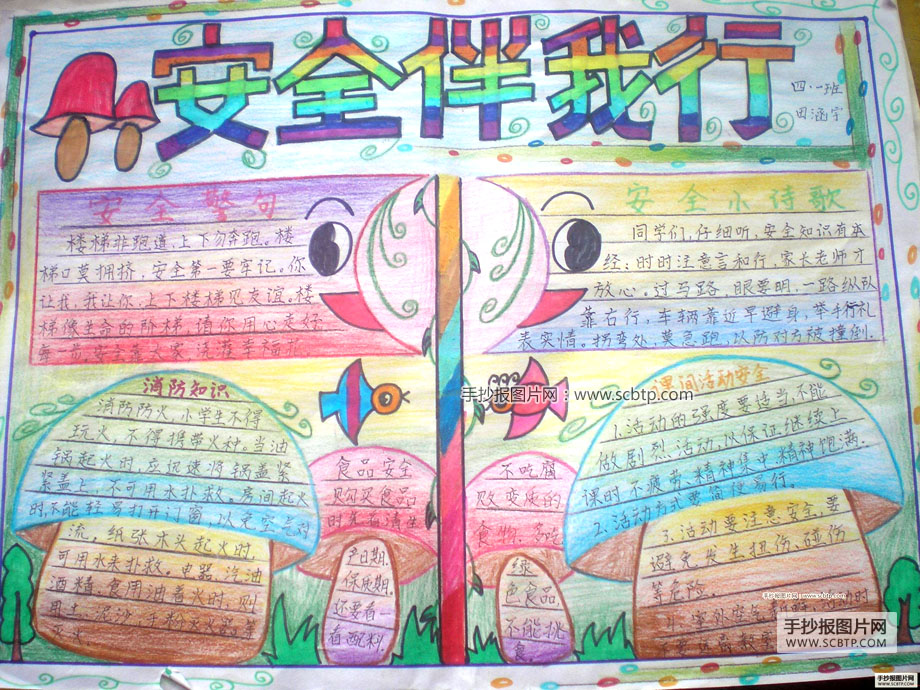 安全伴我行
四·一班
田涵宇
安全警句
楼梯非跑道，上下勿奔跑。楼
梯口莫拥挤，安全第一要牢记。你
让我，我让你，上下楼梯见友谊。楼
梯像生命的阶梯，请你用心走好
每一步，安全靠大家
安全小诗歌
同学们，仔细听，安全知识有本
经：时时注意言和行，家长老师才
放心。过马路，眼要明，一路纵队
靠右行，车辆靠近早避身，举手行礼
表实情。拐弯处，莫急跑，以防对方被撞倒.
消防知识
消防防火，小学生不得
玩火，不得携带火种。当油
锅起火时，应迅速将锅盖紧
紧盖上，不可用水扑救。房间起火
时不能轻易打开门窗，以免空气对
流，纸张木头起火时，
可用水来扑救，电器、汽油
酒精、食用油着火时，则
用土、
食品安全
购买食品
时先看清生
产日期.
保质期.
还要看一
看配料.
不吃腐
败变质的
食物.多吃
绿
色食品,
不能挑
食.
课间活动安全
1.活动的强度要适当,不能
做剧烈活动,以保证继续上
课时不疲劳,精神集中,精神饱满.
2.活动方式要简便易行.
3.活动要注意安全,要
避免发生扭伤、碰伤
等危险.
手抄报图片网：www.scbtp.com
手抄报图片网：www.scbtp.com
手抄报图片网
WWW.SCBTP.COM
手抄报图片网
WWW.SCBTP.COM